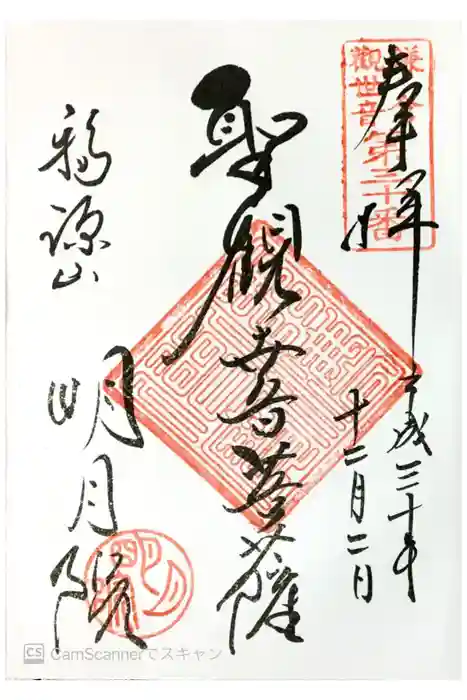 奉拝
鎌倉
觀世音第三十番
平成三十年
十二月二日
聖観音菩薩
福源山
明月院
明月
CS CamScannerでスキャン